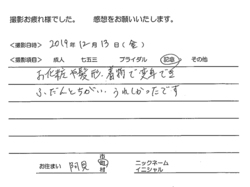 撮影お疲れ様でした。 感想をお願いいたします。
<撮影日時> 2019年 12月 13日 (金)
<撮影項目> 成人 七五三 ブライダル 記念 その他
お化粧や髪形、着物で変身でき
ふだんとちがい、うれしかったです
お住まい 阿見 町 村 ニックネーム
イニシャル